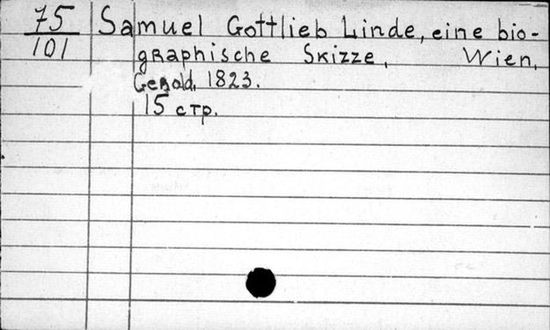 75
101
Samuel Gottlieb Linde, eine bio-
graphische Skizze, Wien,
Gerold, 1823.
15 стр.